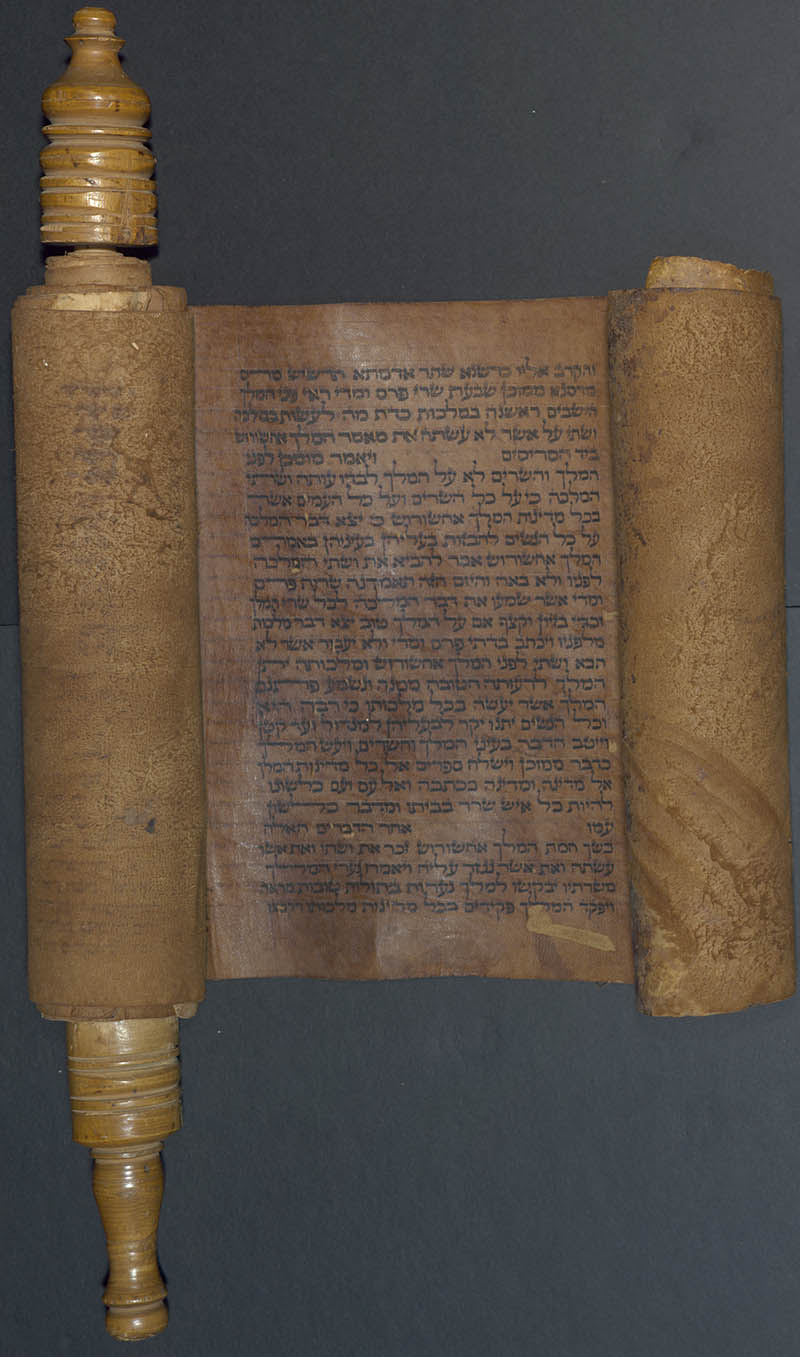 והקרב אליו כרשנא שתר אדמתא תרשיש מרס
מרסנא ממוכן שבעת שרי פרס ומדי ראי פני המלך
הישבים ראשנה במלכות כדת מה לעשות במלכה
ושתי על אשר לא עשתה את מאמר המלך אחשורוש
ביד הסריסים ויאמר מומכן לפני
המלך והשרים לא על המלך לבדו עותה ושתי
המלכה כי על כל השרים ועל כל העמים אשר
בכל מדינות המלך אחשורוש כי יצא דבר המלכה
על כל הנשים להבזות בעליהן בעיניהן באמרם
המלך אחשורוש אמר להביא את ושתי המלכה
לפניו ולא באה והיום הזה תאמרנה שרות פרס
ומדי אשר שמעו את דבר המלכה לכל שרי המלך
וכדי בזיון וקצף אם על המלך טוב יצא דבר מלכות
מלפניו ויכתב בדתי פרס ומדי ולא יעבור אשר לא
תבא ושתי לפני המלך אחשורוש ומלכותה יתן
המלך לרעותה הטובה ממנה ונשמע פתגם
המלך אשר יעשה בכל מלכותו כי רבה היא
וכל הנשים יתנו יקר לבעליהן למגדול ועד קטן
וייטב הדבר בעיני המלך והשרים ויעש המלך
כדבר ממוכן וישלח ספרים אל כל מדינות המלך
אל מדינה ומדינה ככתבה ואל עם ועם כלשונו
להיות כל איש שרר בביתו ומדבר כלשון
עמו אחר הדברים האלה
כשך חמת המלך אחשורוש זכר את ושתי ואת אשר
עשתה ואת אשר נגזר עליה ויאמרו נערי המלך
משרתיו יבקשו למלך נערות בתולות טובות מראה
ויפקד המלך פקידים בכל מדינות מלכותו ויקבצו